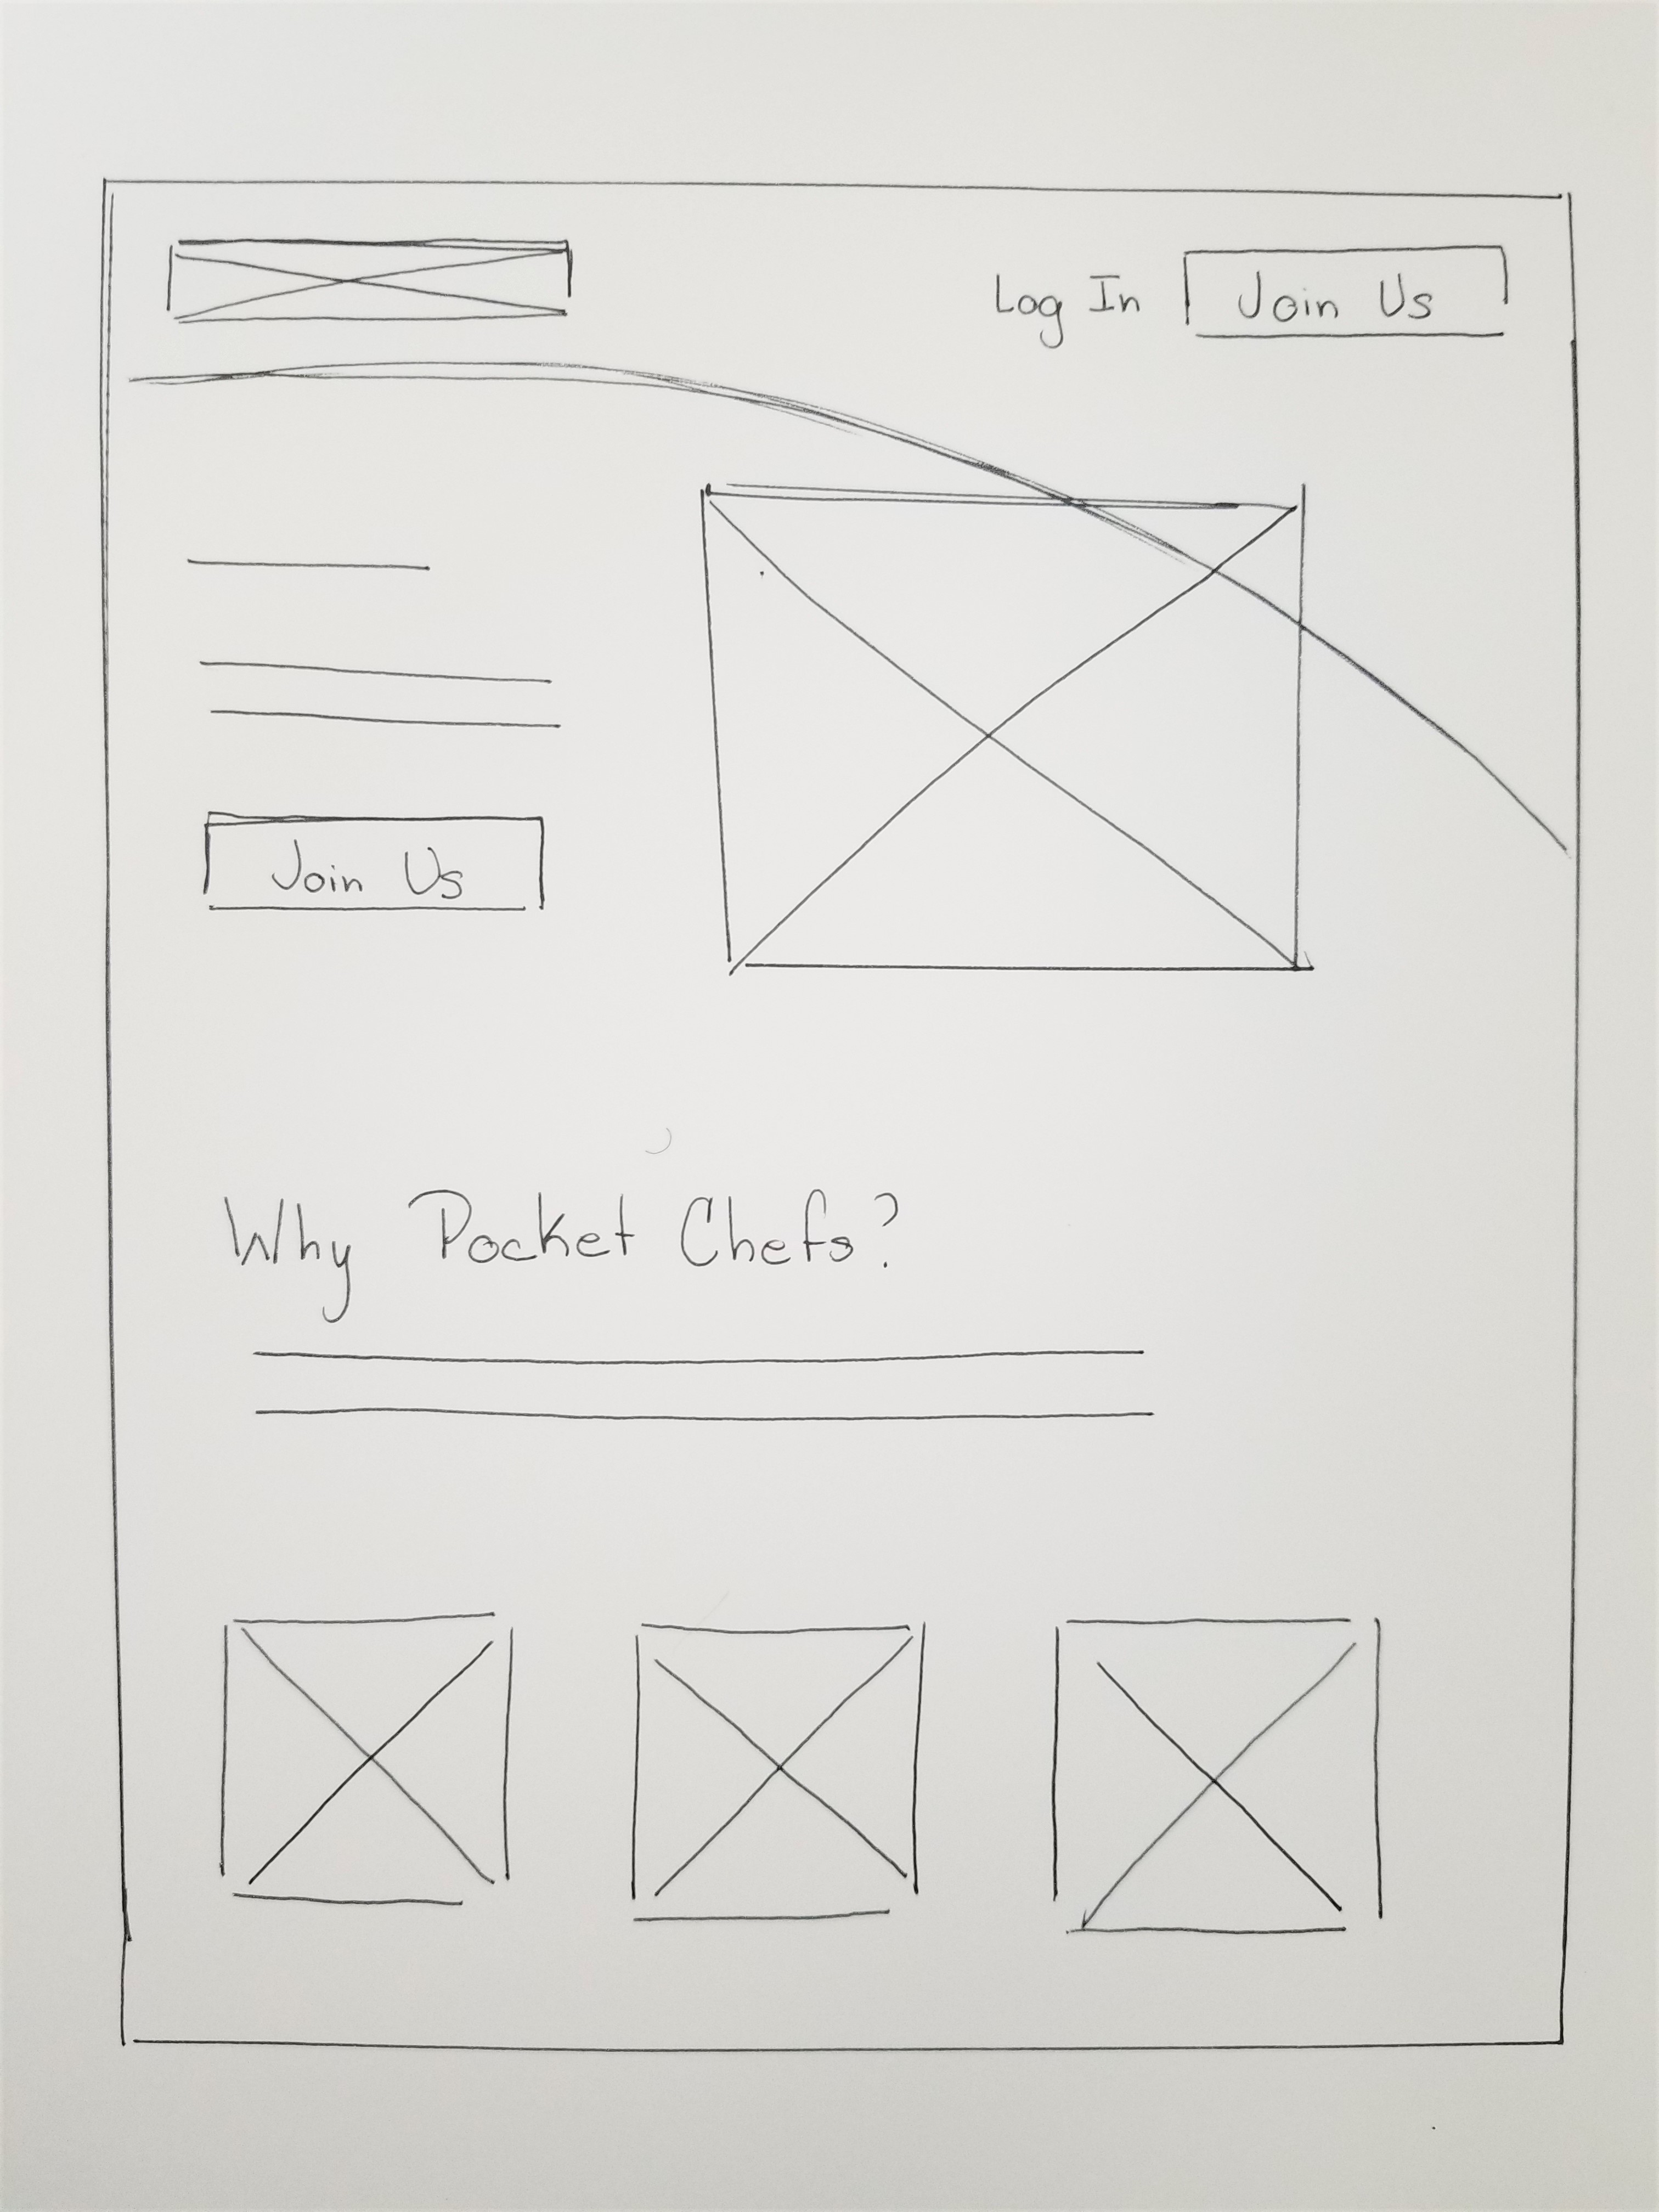 Log In Join Us
Join Us
Why Pocket Chefs?